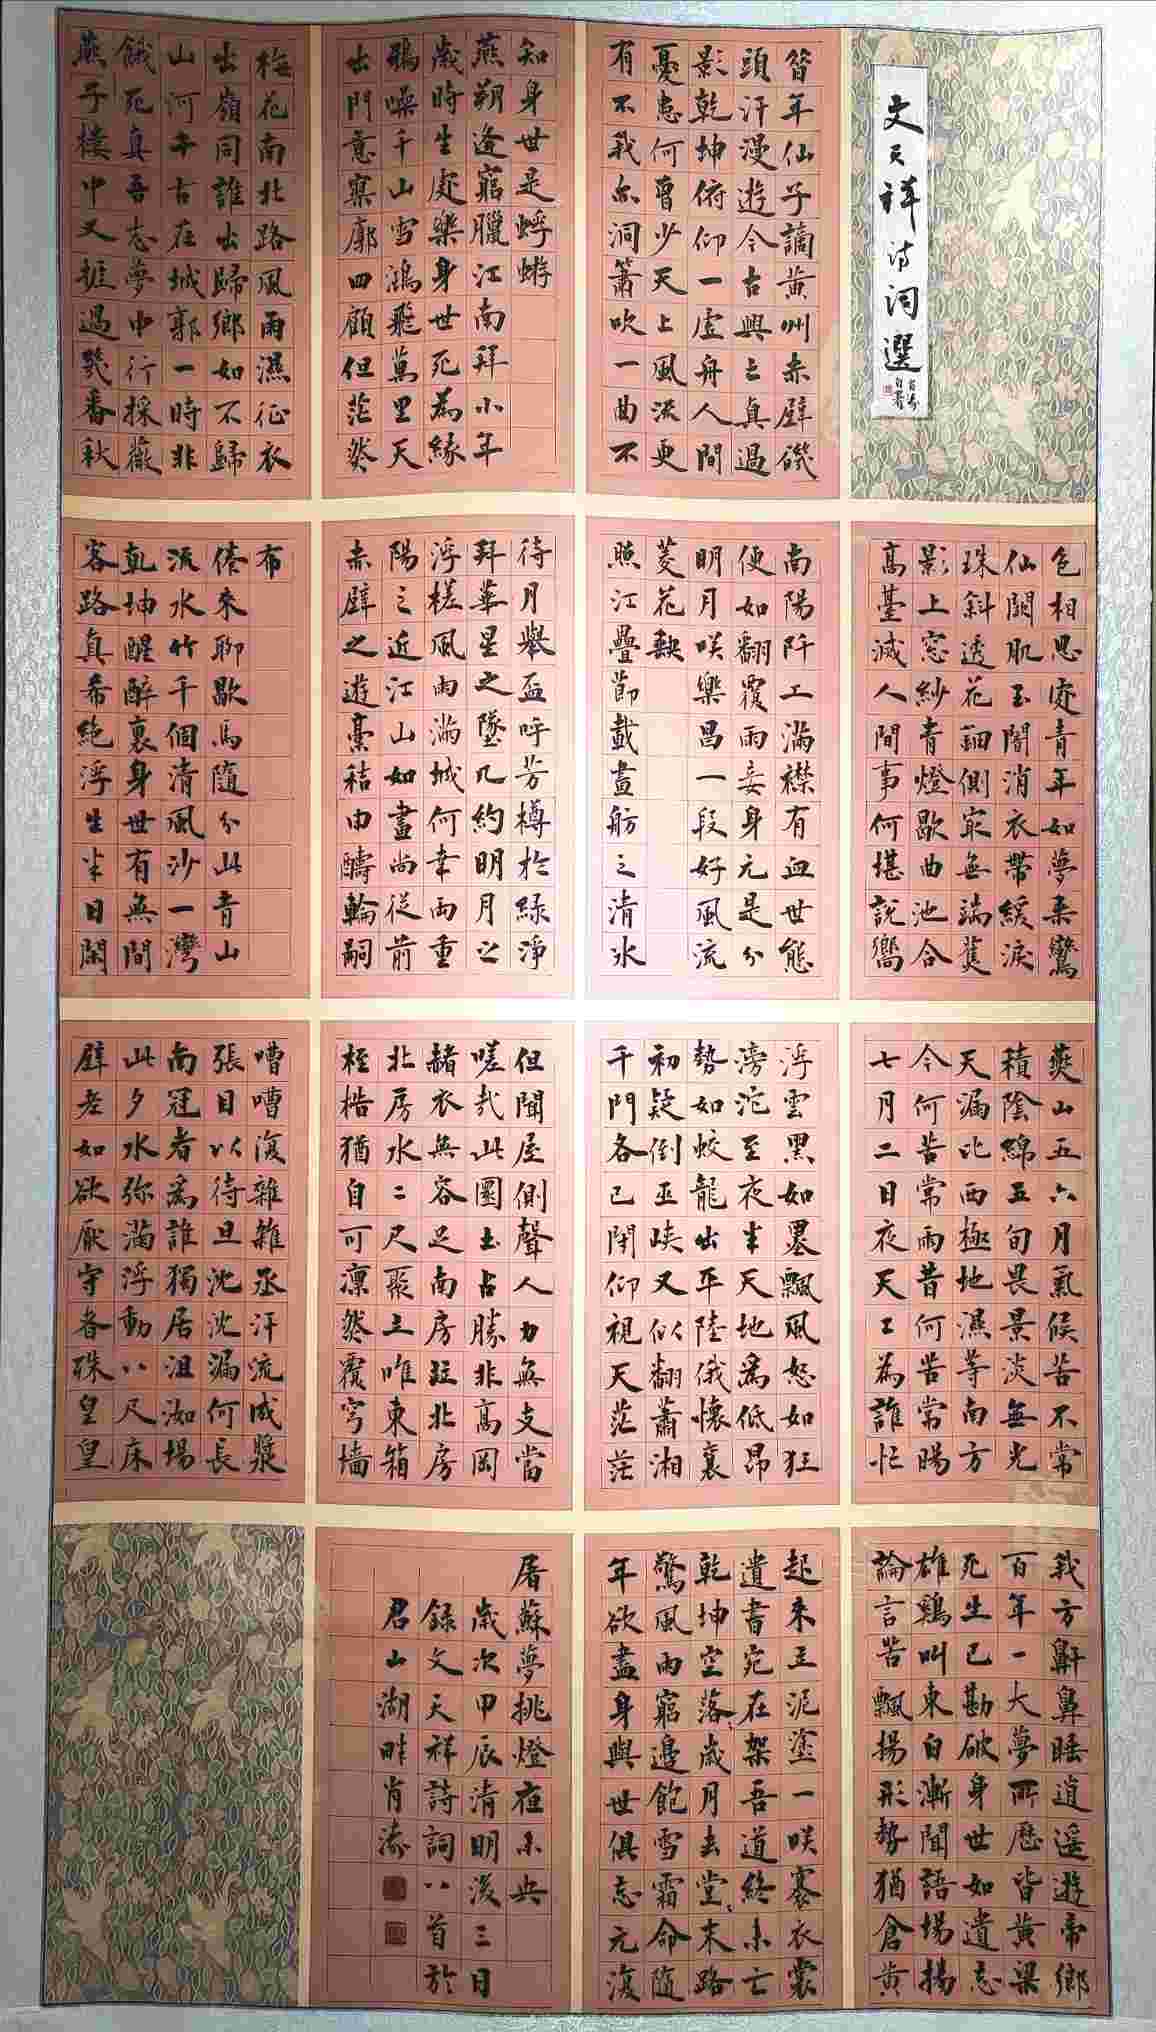 文天祥诗词選
昔年仙子謫黄州赤壁磯
頭汗漫遊今古興亡真過
影乾坤俯仰一虚舟人間
憂患何曾少天上風流更
有不我亦洞簫吹一曲不
知身世是蜉蝣
燕朔逢窮臘江南拜小年
歲時生處樂身世死為緣
鴉噪千山雪鴻飛萬里天
出門意寥廓四顧但茫然
梅花南北路風雨濕征衣
出嶺同誰出歸鄉如不歸
山河千古在城郭一時非
餓死真吾志夢中行採薇
燕子樓中又捱過幾番秋
色相思處青年如夢乘鸞
仙闕肌玉闇消衣帶緩淚
珠斜透花鈿側最無端蕉
影上窓紗青燈歇曲池合
高臺滅人間事何堪說嚮
南陽阡上滿襟有血世態
便如翻覆雨妾身元是分
明月咲樂昌一段好風流
菱花缺
照江疊節載畫舫之清冰
待月舉盃呼芳樽於綠淨
拜華星之墜几約明月之
浮槎風雨滿城何幸兩重
陽之近江山如畫尚從前
赤壁之遊藁秸申醻輪嗣
布
倦來聊歇馬隨分此青山
流水竹千個清風沙一灣
乾坤醒醉裏身世有無間
客路真希絕浮生半日閑
燕山五六月氣候苦不常
積陰綿五旬畏景淡無光
天漏比西極地濕等南方
今何苦常雨昔何苦常暘
七月二日夜天工為誰忙
浮雲黑如墨飄風怒如狂
滂沱至夜半天地為低昂
勢如蛟龍出平陸俄懷襄
初疑倒巫峽又似翻蕭湘
千門各已閉仰視天茫茫
但聞屋側聲人力無支當
嗟哉此圜土占勝非高岡
赭衣無容足南房北房
北房水二尺聚立唯東箱
桎梏猶自可凛然覆穹墻
嘈嘈復雜雜丞汗流成漿
張目以待旦沈沈漏何長
南冠者為誰獨居沮洳場
此夕水弥滿浮動八尺床
壁老如欲厭守者殊皇皇
我方鼾鼻睡逍遥遊帝鄉
百年一大夢所歷皆黄粱
死生已勘破身世如遺忘
雄鷄叫東白漸聞語場揚
論言苦飄揚形勢猶倉黄
起來立泥塗一咲褰衣裳
遺書宛在架吾道終未亡
乾坤空落〻歲月去堂〻末路
驚風雨窮邊飽雪霜命隨
年欲盡身與世俱忘元復
屠蘇夢挑燈夜未央
歲次甲辰清明後三日
録文天祥詩詞八首於
君山湖畔肖濤